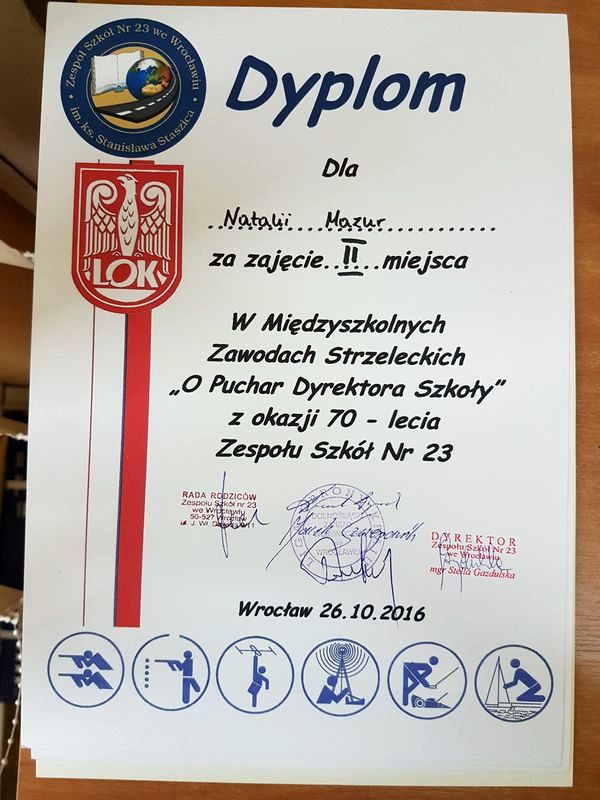 Zespół Szkół Nr 23 we Wrocławiu
im. ks. Stanisława Staszica
Dyplom
LOK
Dla
Natalii Mazur
za zajęcie..II..miejsca
W Międzyszkolnych
Zawodach Strzeleckich
„O Puchar Dyrektora Szkoły”
z okazji 70 - lecia
Zespołu Szkół Nr 23
RADA RODZICÓW
Zespołu Szkół nr 23
we Wrocławiu
50-527 Wrocław
DYREKTOR
Zespołu Szkół Nr 23
we Wrocławiu
mgr Stella Gazdulska
Wrocław 26.10.2016